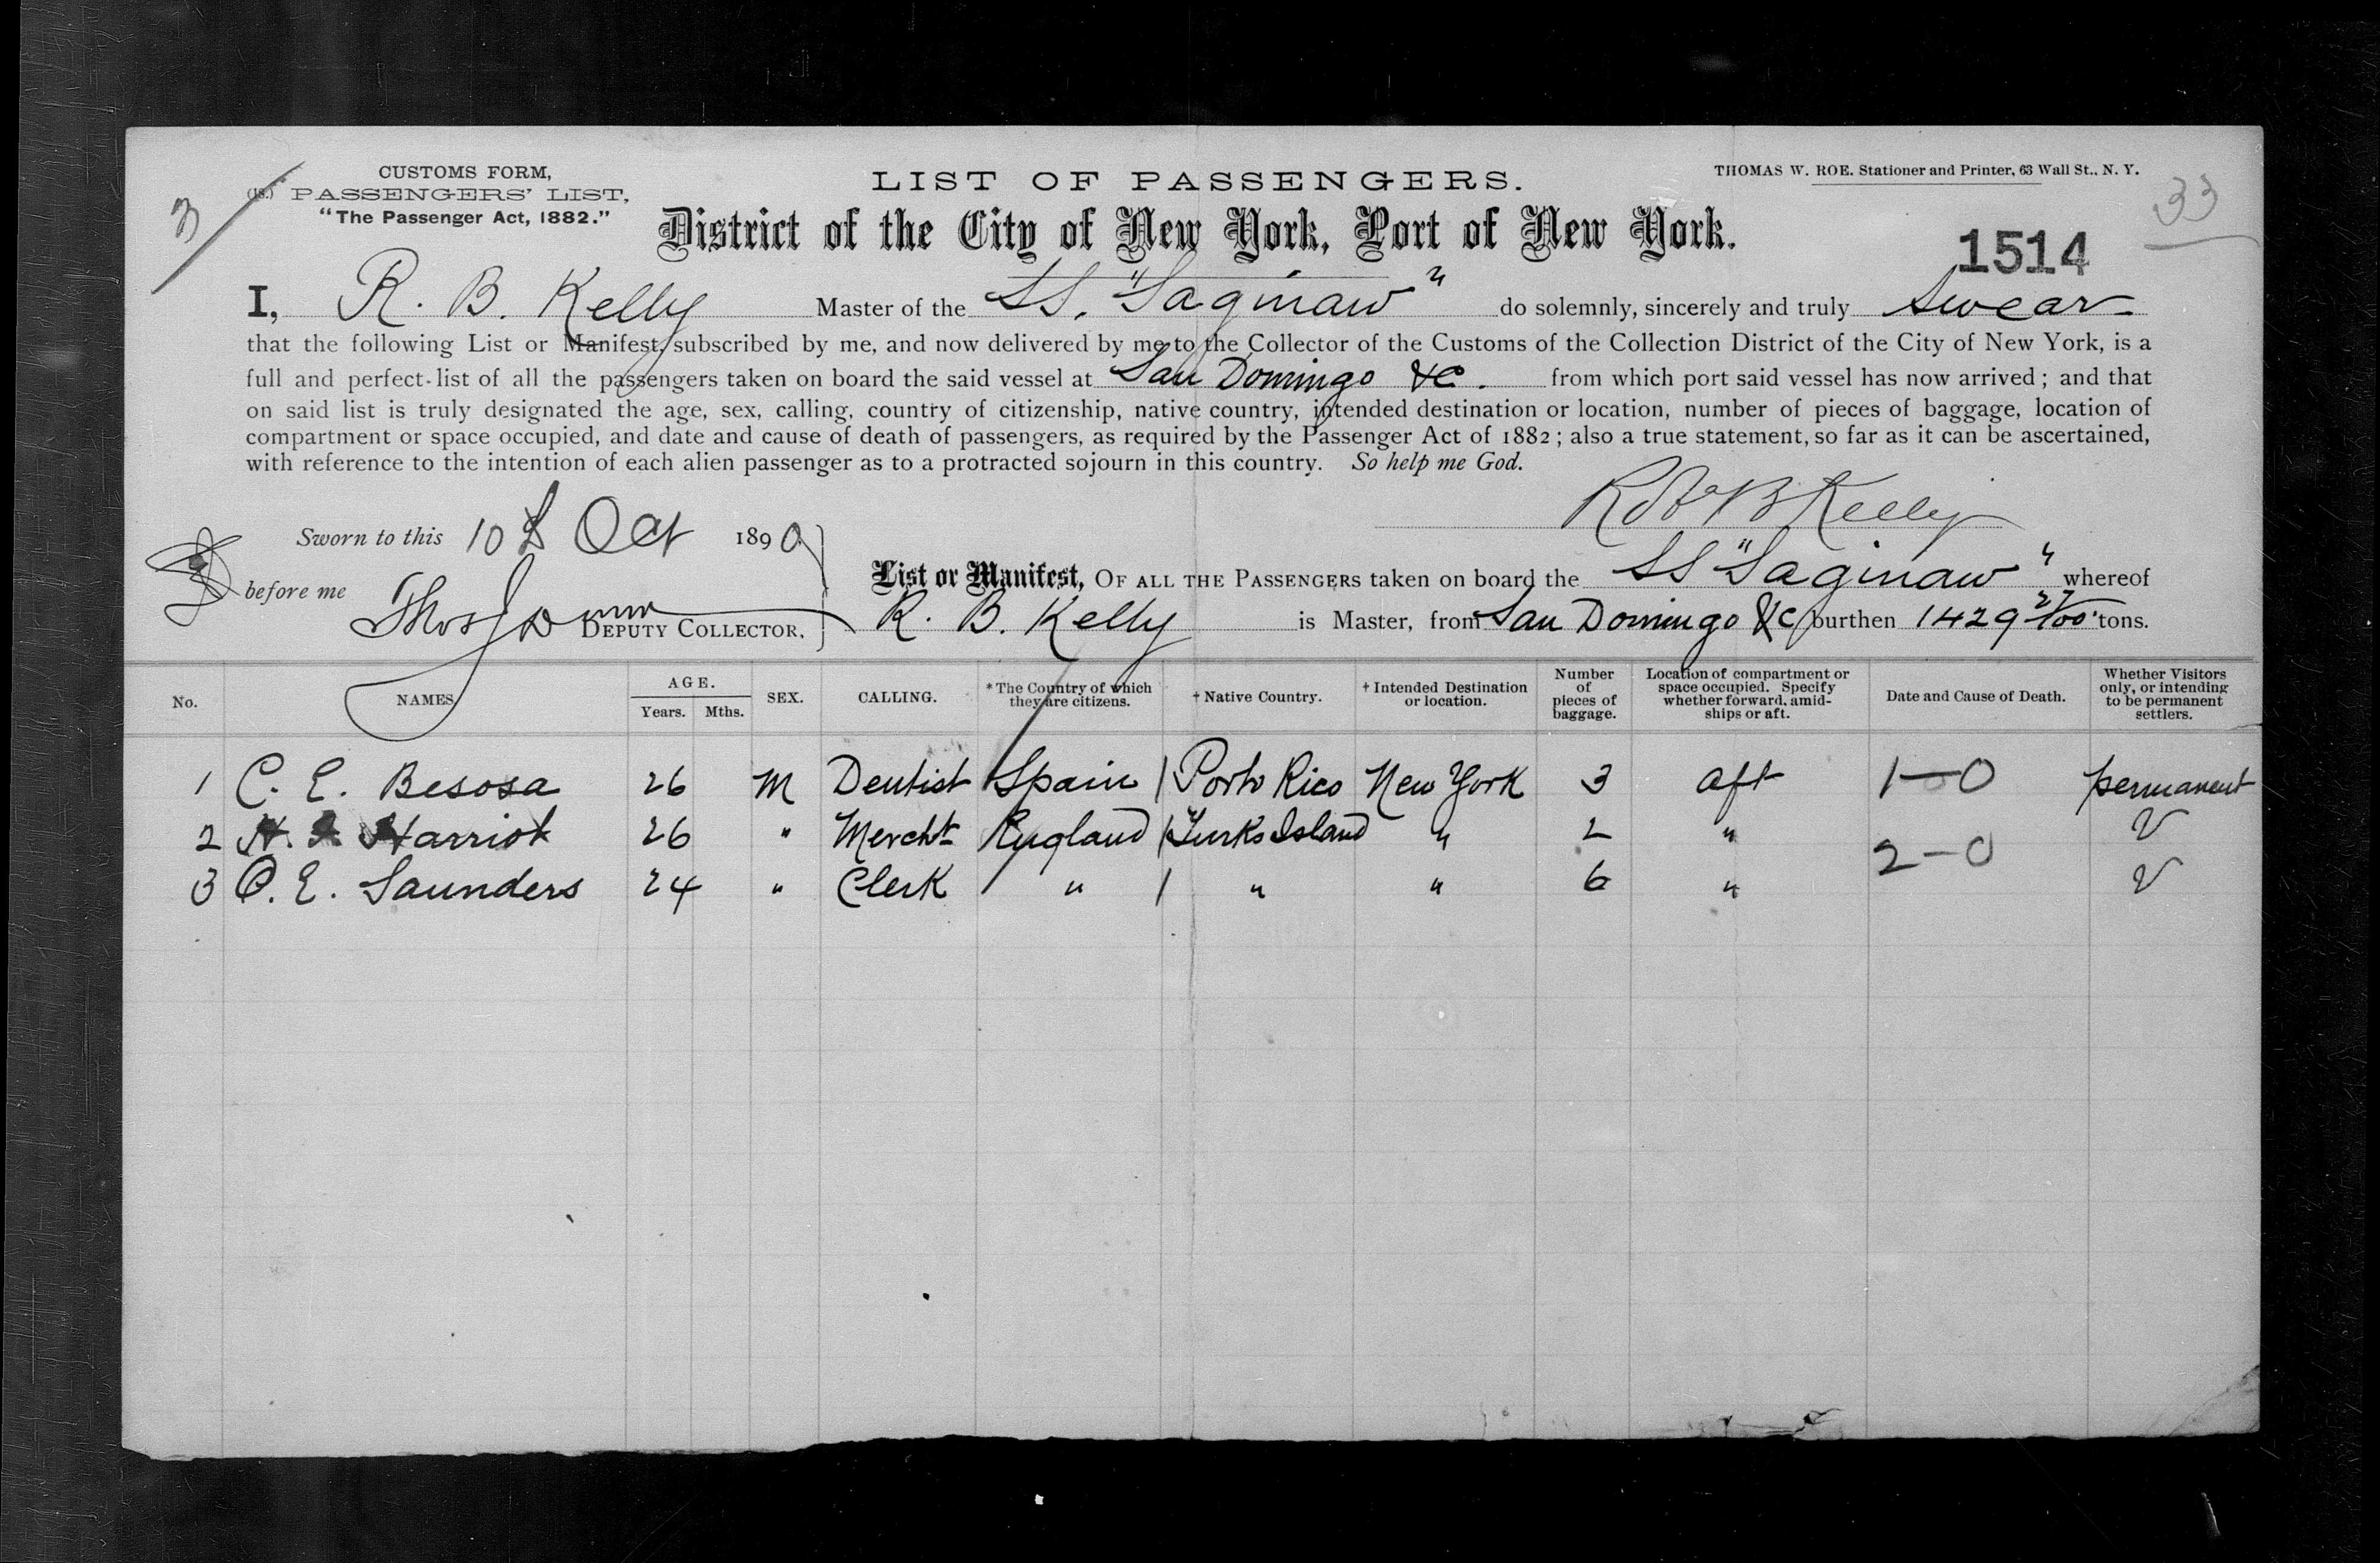 CUSTOMS FORM,
(18.) PASSENGERS' LIST,
"The Passenger Act, 1882."
3
LIST OF PASSENGERS.
THOMAS W. ROE. Stationer and Printer, 63 Wall St., N. Y.
33
District of the City of New York, Port of New York.
1514
I, R. B. Kelly Master of the SS. "Saginaw" do solemnly, sincerely and truly Swear
that the following List or Manifest, subscribed by me, and now delivered by me to the Collector of the Customs of the Collection District of the City of New York, is a
full and perfect list of all the passengers taken on board the said vessel at San Domingo &c. from which port said vessel has now arrived; and that
on said list is truly designated the age, sex, calling, country of citizenship, native country, intended destination or location, number of pieces of baggage, location of
compartment or space occupied, and date and cause of death of passengers, as required by the Passenger Act of 1882; also a true statement, so far as it can be ascertained,
with reference to the intention of each alien passenger as to a protracted sojourn in this country. So help me God.
Robt B Kelly
Sworn to this 10 Oct 1890
before me Thos
DEPUTY COLLECTOR.
List or Manifest, OF ALL THE PASSENGERS taken on board the SS "Saginaw" whereof
R. B. Kelly is Master, from San Domingo &c burthen 1429 27/100 tons.
No. NAMES AGE. Years. Mths. SEX. CALLING. *The Country of which they are citizens. †Native Country. †Intended Destination or location. Number of pieces of baggage. Location of compartment or space occupied. Specify whether forward, amidships or aft. Date and Cause of Death. Whether Visitors only, or intending to be permanent settlers.
1 C. E. Besosa 26 M Dentist Spain / Porto Rico New York 3 aft 1-0 permanent
2 H. Harriot 26 " Mercht England / Turks Island " 2 " V
2-0
3 O. E. Saunders 24 " Clerk " / " " 6 " V